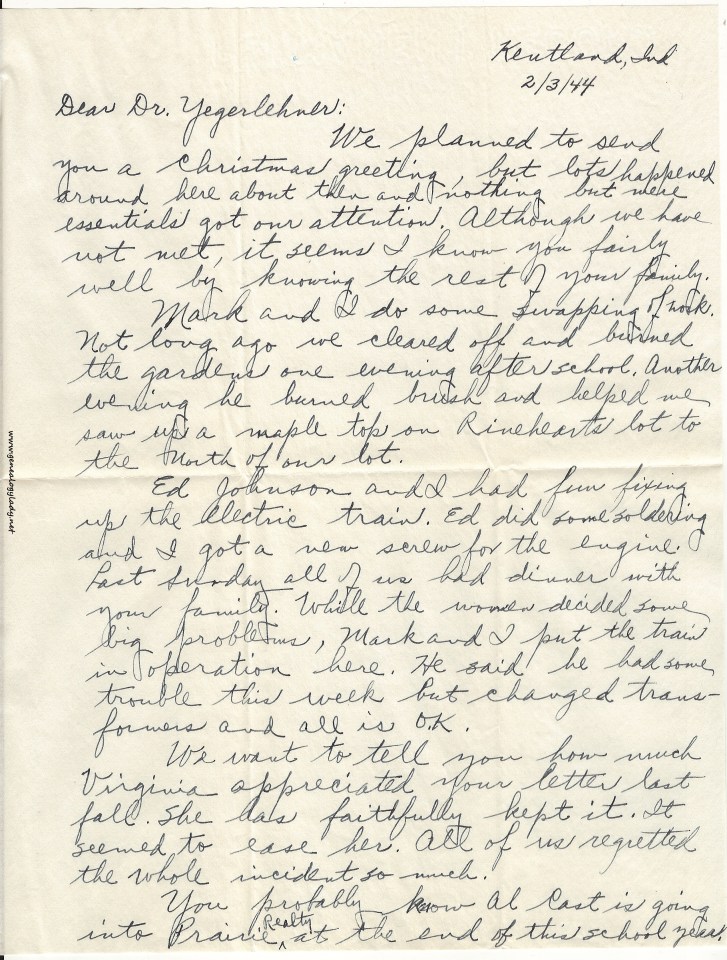 Kentland, Ind
2/3/44
Dear Dr. Yegerlehner:
We planned to send
you a Christmas greeting, but lots happened
around here about then and nothing but mere
essentials got our attention. Although we have
not met, it seems I know you fairly
well by knowing the rest of your family.
Mark and I do some swapping of work.
Not long ago we cleared off and burned
the gardens one evening after school. Another
evening he burned brush and helped me
saw up a maple top on Rineharts lot to
the North of our lot.
Ed Johnson and I had fun fixing
up the electric train. Ed did some soldering
and I got a new screw for the engine.
Last Sunday all of us had dinner with
your family. While the women decided some
big problems, Mark and I put the train
in operation here. He said he had some
trouble this week but changed trans-
formers and all is O.K.
We want to tell you how much
Virginia appreciated your letter last
fall. She has faithfully kept it. It
seemed to ease her. All of us regretted
the whole incident so much.
You probably know Al Cast is going
into Prairie Realty at the end of this school year.
www.genealogylady.net